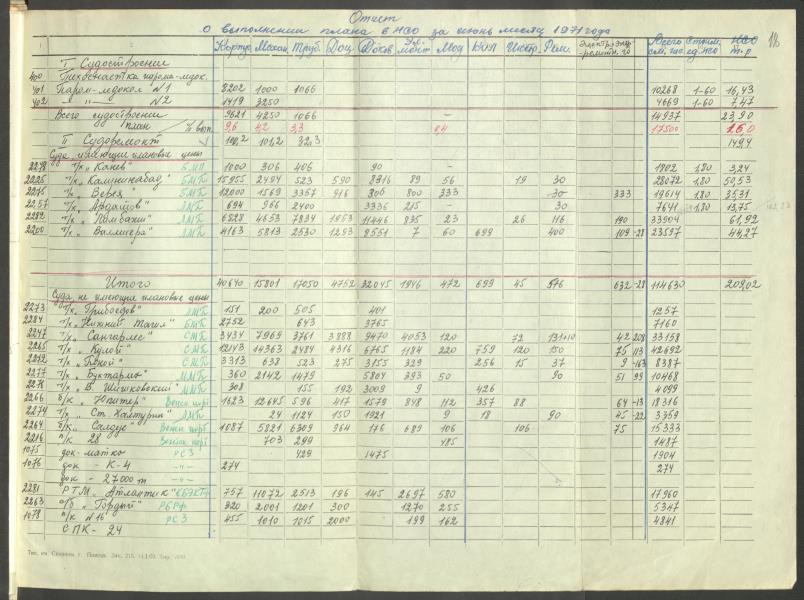 Отчет
о выполнении плана в НСО за июнь месяц 1971 года
Корпус Механ. Трубн. Доц Доков. Эл. монт Мод ДОЦ Инстр. Рем. Электро ремонтн. Всего см. час Стоим. ед. НСО НСО т.р
I Судостроении
400
401 Паром-ледокол N1 8202 1000 1066 10268 1-60 16,43
402 -"- N2 1419 3250 4669 1-60 7,47
Всего судостроении 9621 4250 1066 – 14937 23,90
план % вып. 9,6 4,2 3,3 0,4 17500
II Судоремонт 100,2 101,2 32,3 149,4
Суда, имеющие плановые цены
2278 т/х "Канев" БМП 1000 306 406 90 – 1802 1,80 3,24
2225 т/х "Калининабад" БМБ 15955 2494 523 590 8316 89 56 19 30 28072 1,80 50,53
2215 "Верец" БМБ 12000 1569 3357 916 306 800 333 30 333 19614 1,80 35,31
2257 т/х "Ардатов" ЛМБ 694 966 2400 3336 215 – 30 7641 1,80 13,75
2282 п/х ЛМБ 6828 4653 7834 1953 11446 835 23 26 116 190 33904 61,92
2200 т/х "Валмиера" ЛМБ 4163 5813 2530 1293 8551 7 60 699 400 109 -28 23597 44,27
Итого 40640 15801 17050 4752 32045 1946 472 699 45 576 632 -28 114630 209,02
Суда, не имеющие плановые цены
2273 т/х "Грибоедов" ЛМБ 151 200 505 401 1257
2284 т/х "Нижний Тагил" БМБ 2752 643 3765 7160
2247 т/х "Сангарлес" СМБ 3434 7969 3761 3888 9470 4053 120 72 131+10 42 208 33158
2265 т/х "Кулой" СМБ 12143 14363 2484 4316 6765 1184 220 759 120 150 75 113 42692
2212 т/х СМБ 3313 638 523 275 3155 329 256 15 37 9 -163 8387
2277 т/х "Бухтарма" ММБ 360 2142 1479 5804 393 50 90 51 99 10468
2278 т/х "В. Шишковский" ММБ 308 155 192 3009 9 426 4099
2266 б/к "Юпитер" Вент порт 1623 12645 596 417 1579 848 112 357 88 64 -13 18316
2274 т/х "Ст. Халтурин" ЛМБ 24 1124 150 1921 9 18 90 45 -22 3359
2264 б/к "Салдус" Вент порт 1087 5821 6309 964 176 689 106 106 75 15333
2216 п/к 28 Вент порт 703 299 485 1487
1075 док-матка РСЗ 429 1475 1904
1076 док - К-4 -"- 274 274
док - 27000 т -"-
2281 РТМ "Атлантик" 757 11072 2513 196 145 2697 580 17960
2263 п/б "Гордый" РБРФ 920 2001 1201 300 1270 255 5347
1078 п/к N16 РСЗ 455 1010 1015 2000 199 162 4841
СПК-24